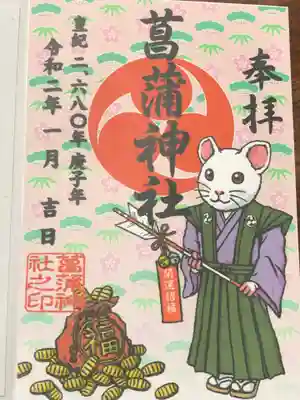 奉拝
菖蒲神社
皇紀二、六八〇年庚子年
令和二年一月吉日
開運招福
招福
菖蒲神
社之印